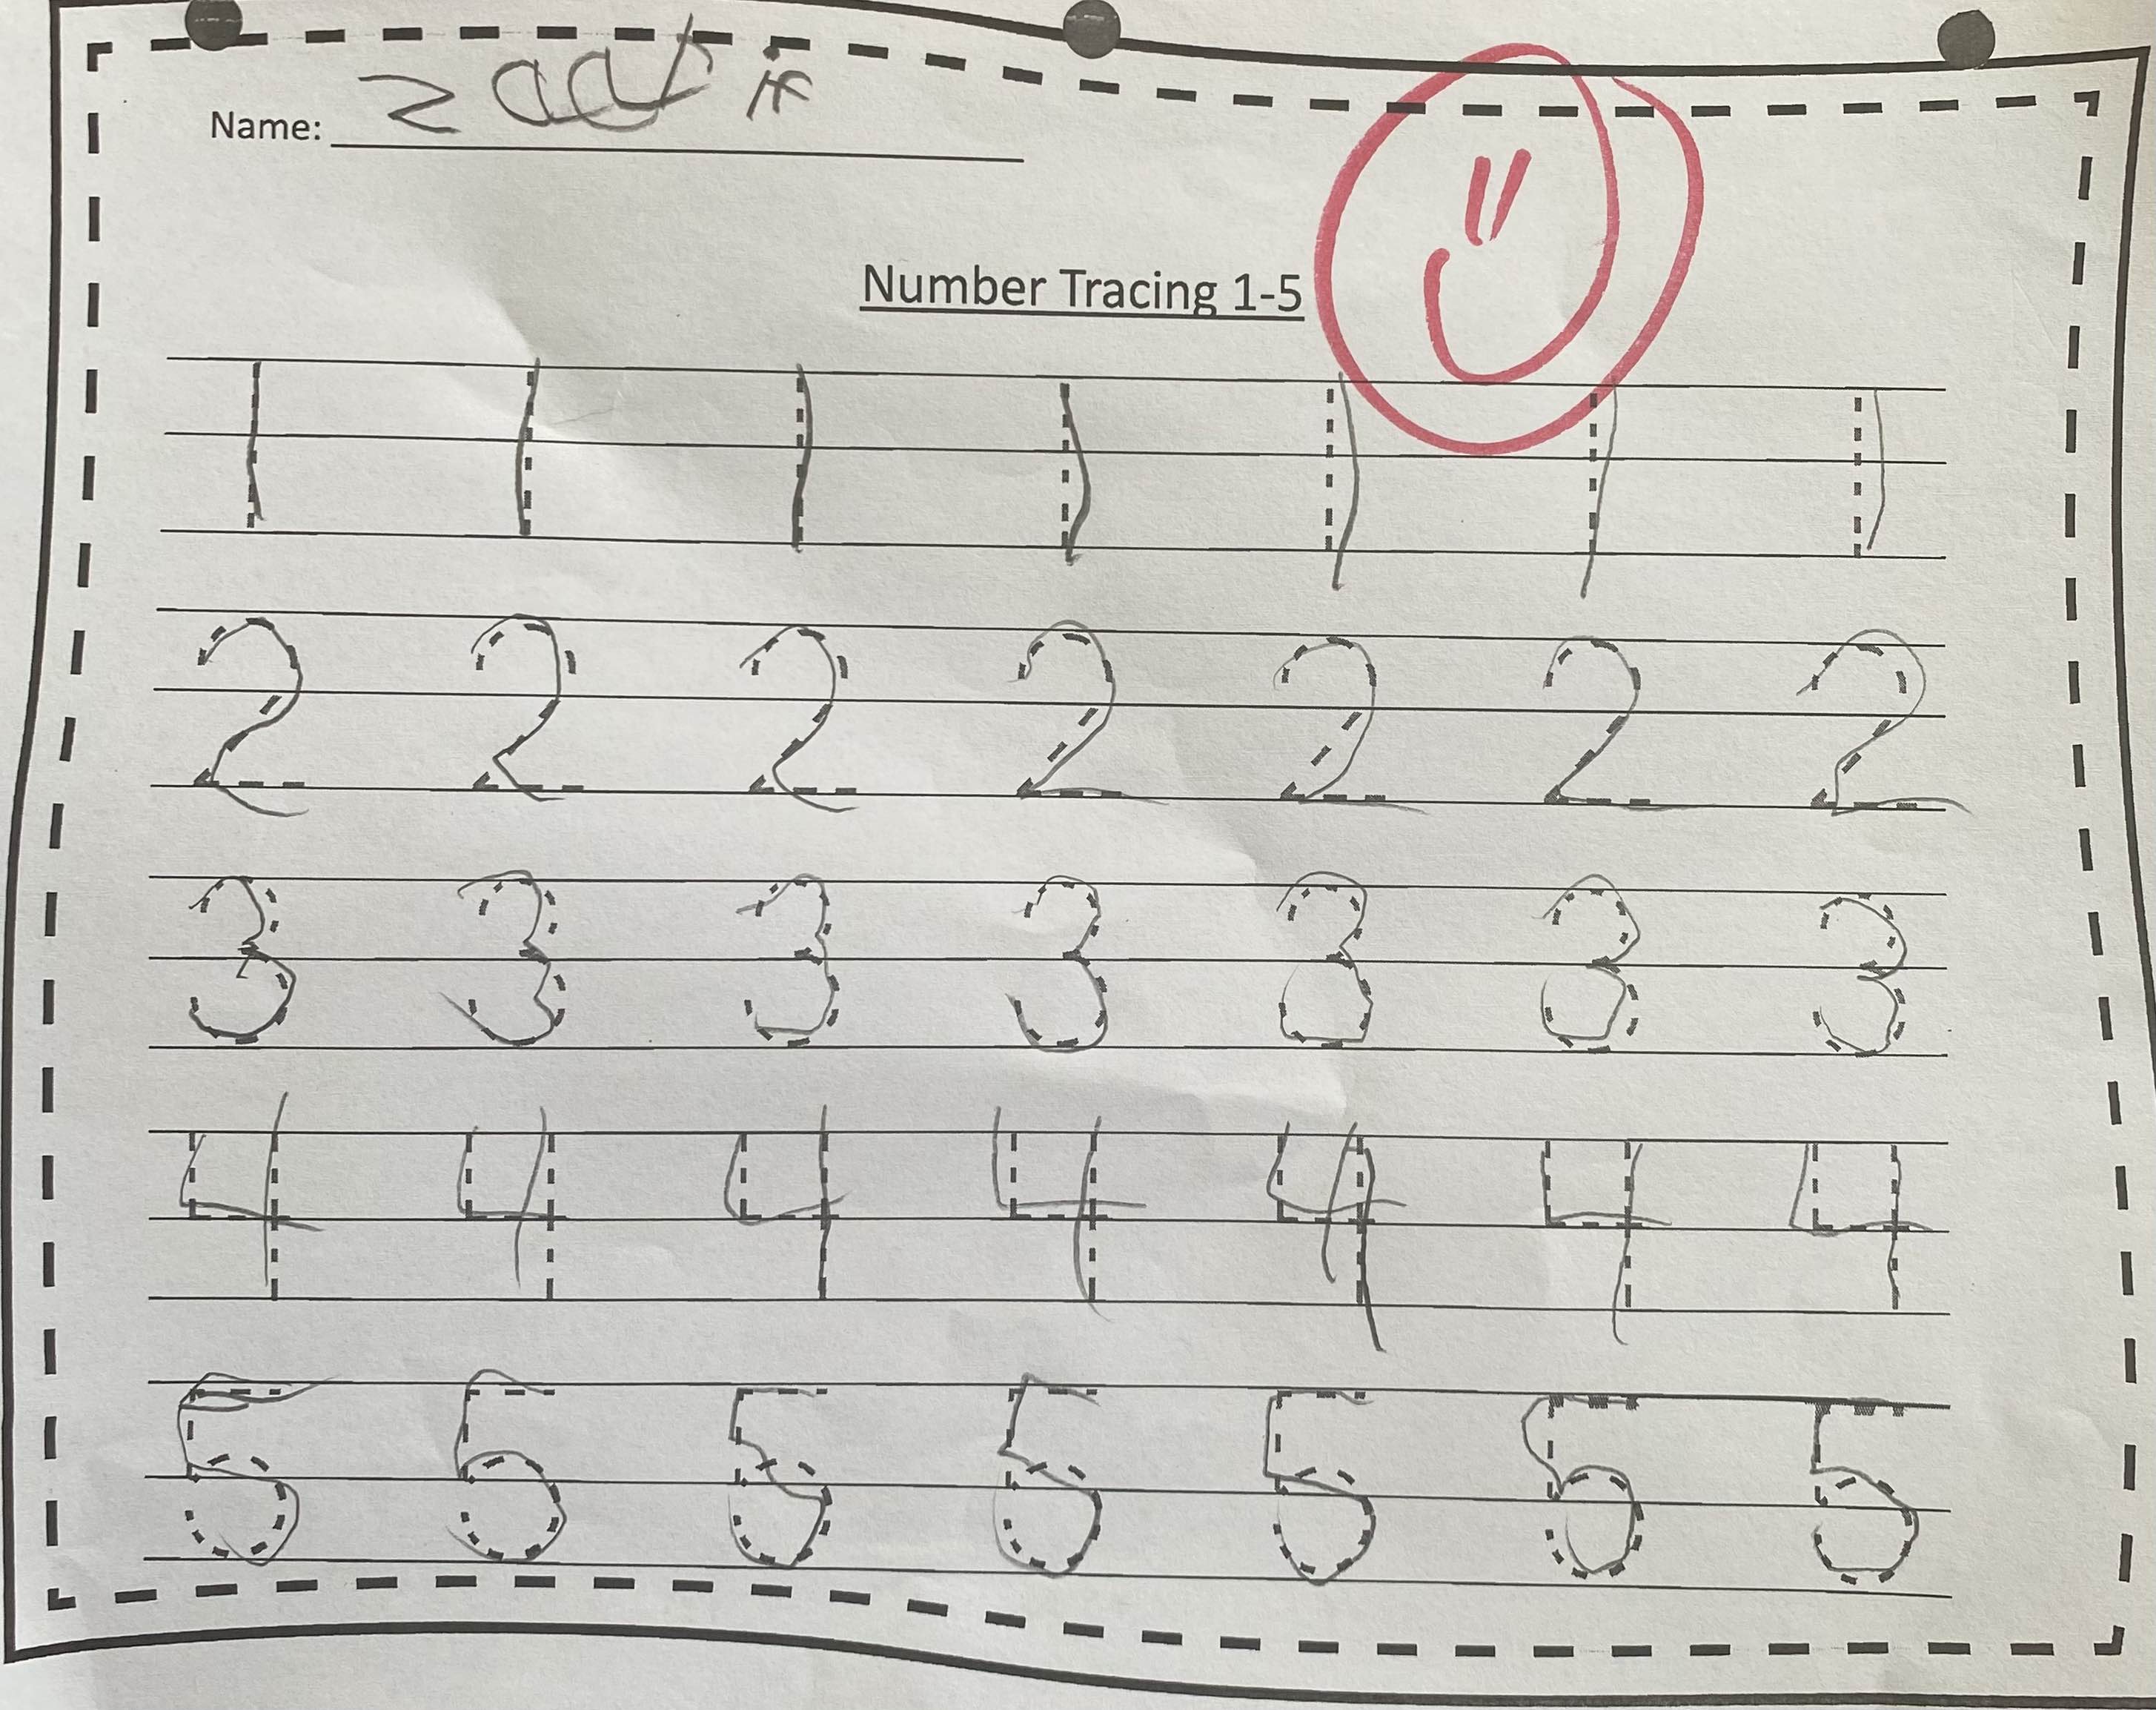 Name:
Number Tracing 1-5
1 1 1 1 1 1 1
2 2 2 2 2 2 2
3 3 3 3 3 3 3
4 4 4 4 4 4 4
5 5 5 5 5 5 5